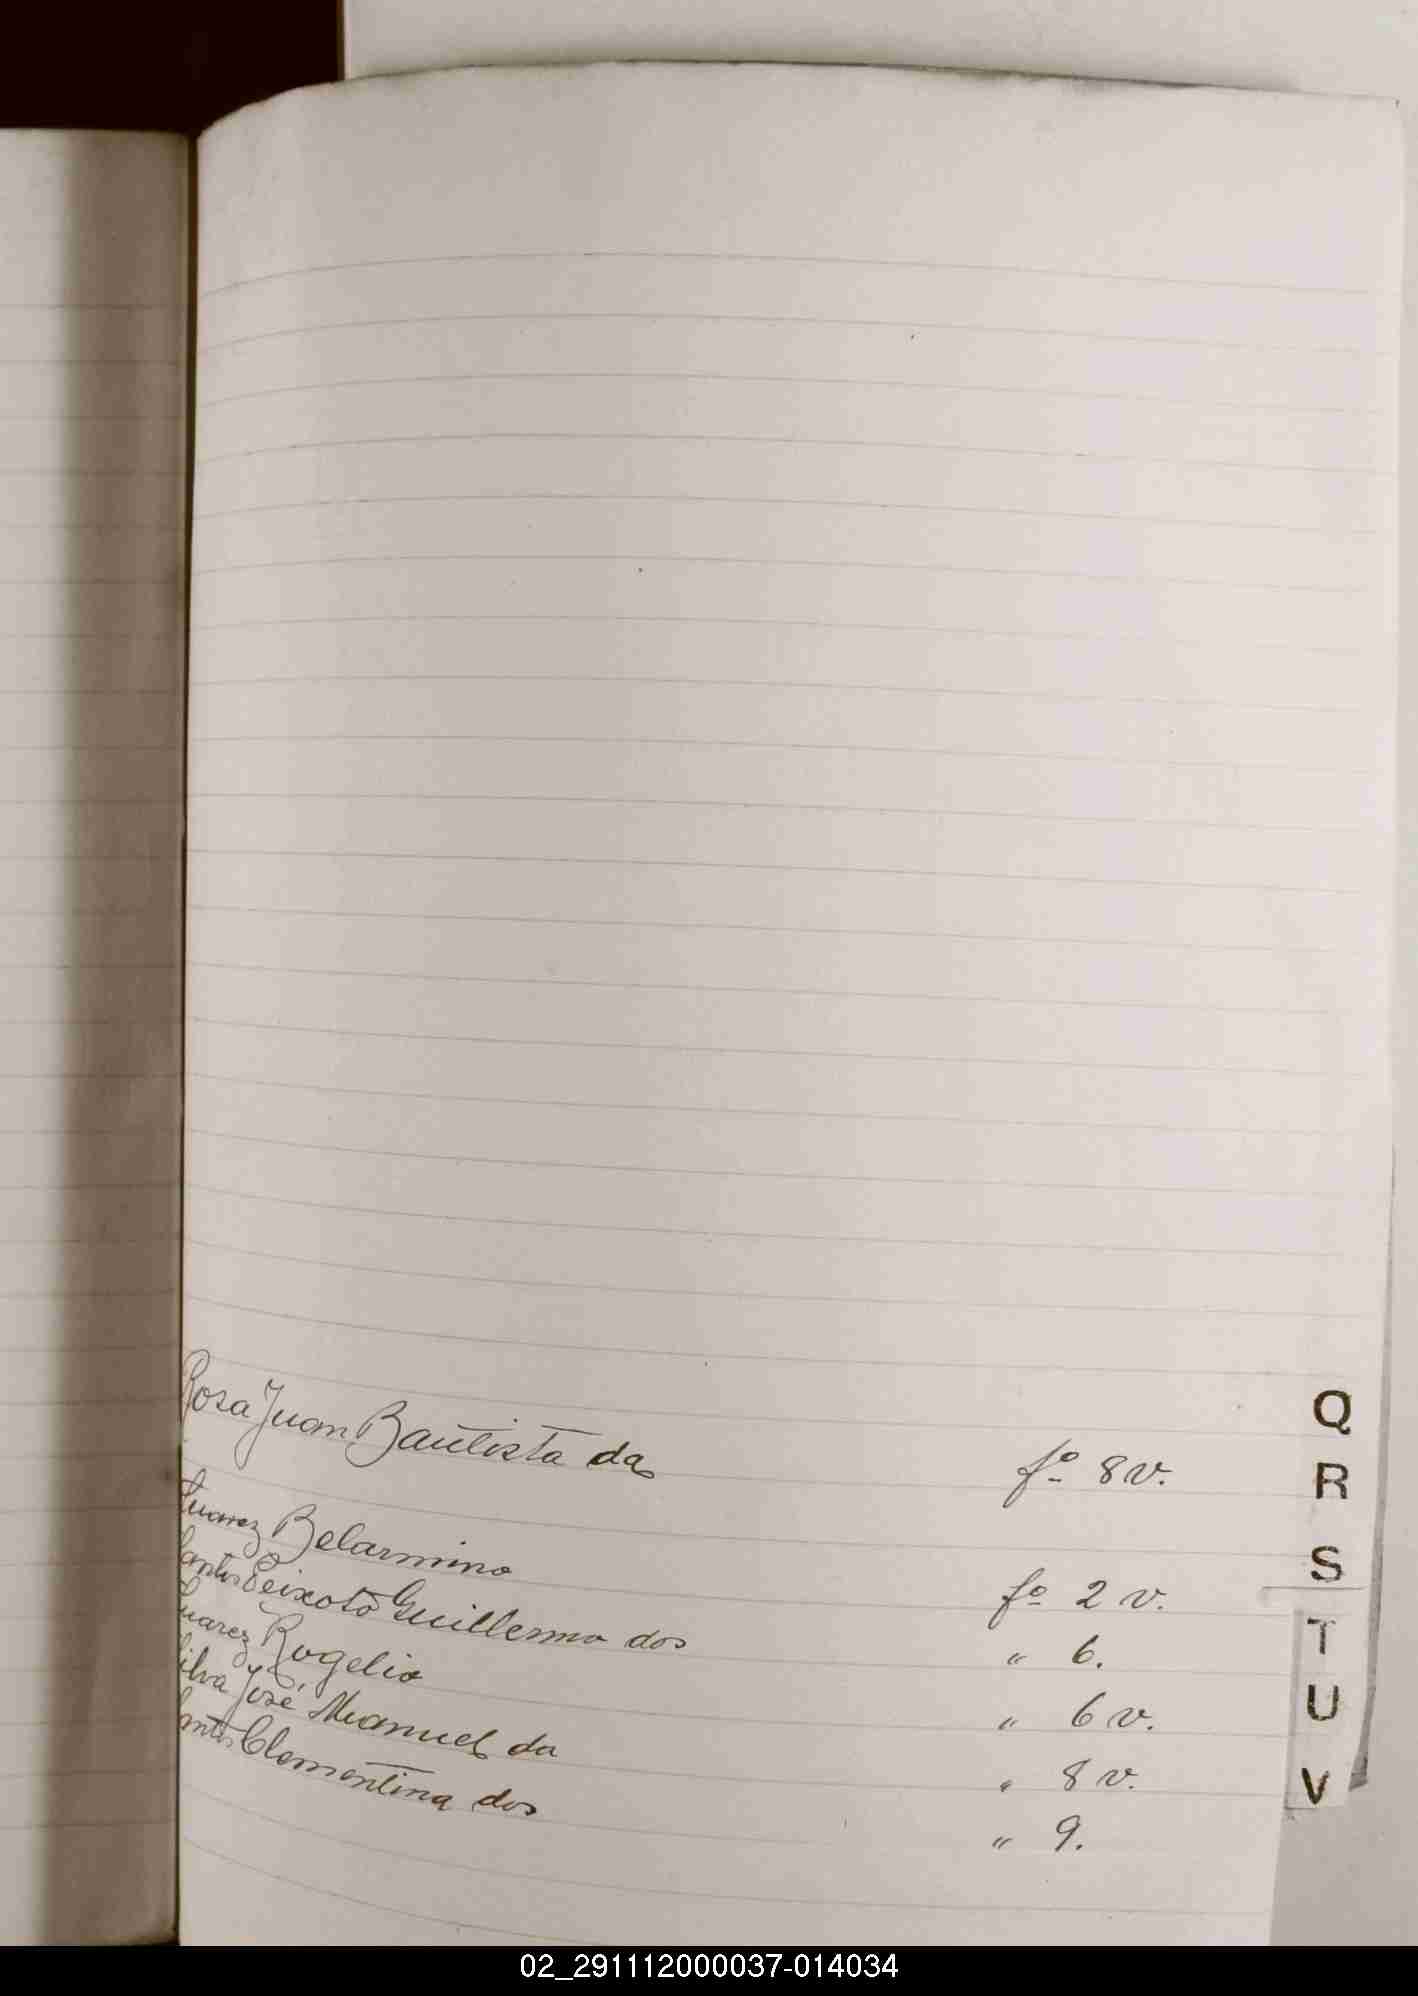 Rosa Juan Bautista da fo 8 v.
Suarez Belarmino fo 2 v.
Santos Peixoto Guillermo dos " 6.
Suarez Rogelio " 6 v.
Silva José Manuel da " 8 v.
Santos Clementina dos " 9.
Q
R
S
T
U
V
02_291112000037-014034